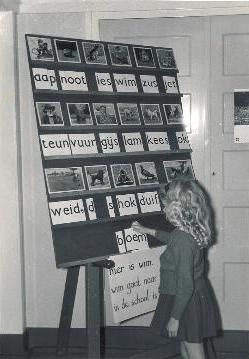 aap noot ies wim zus jet
teun vuur gijs lam kees ok
weid d s hok duif
bloem
hier is wim.
wim gaat naar
in de school is